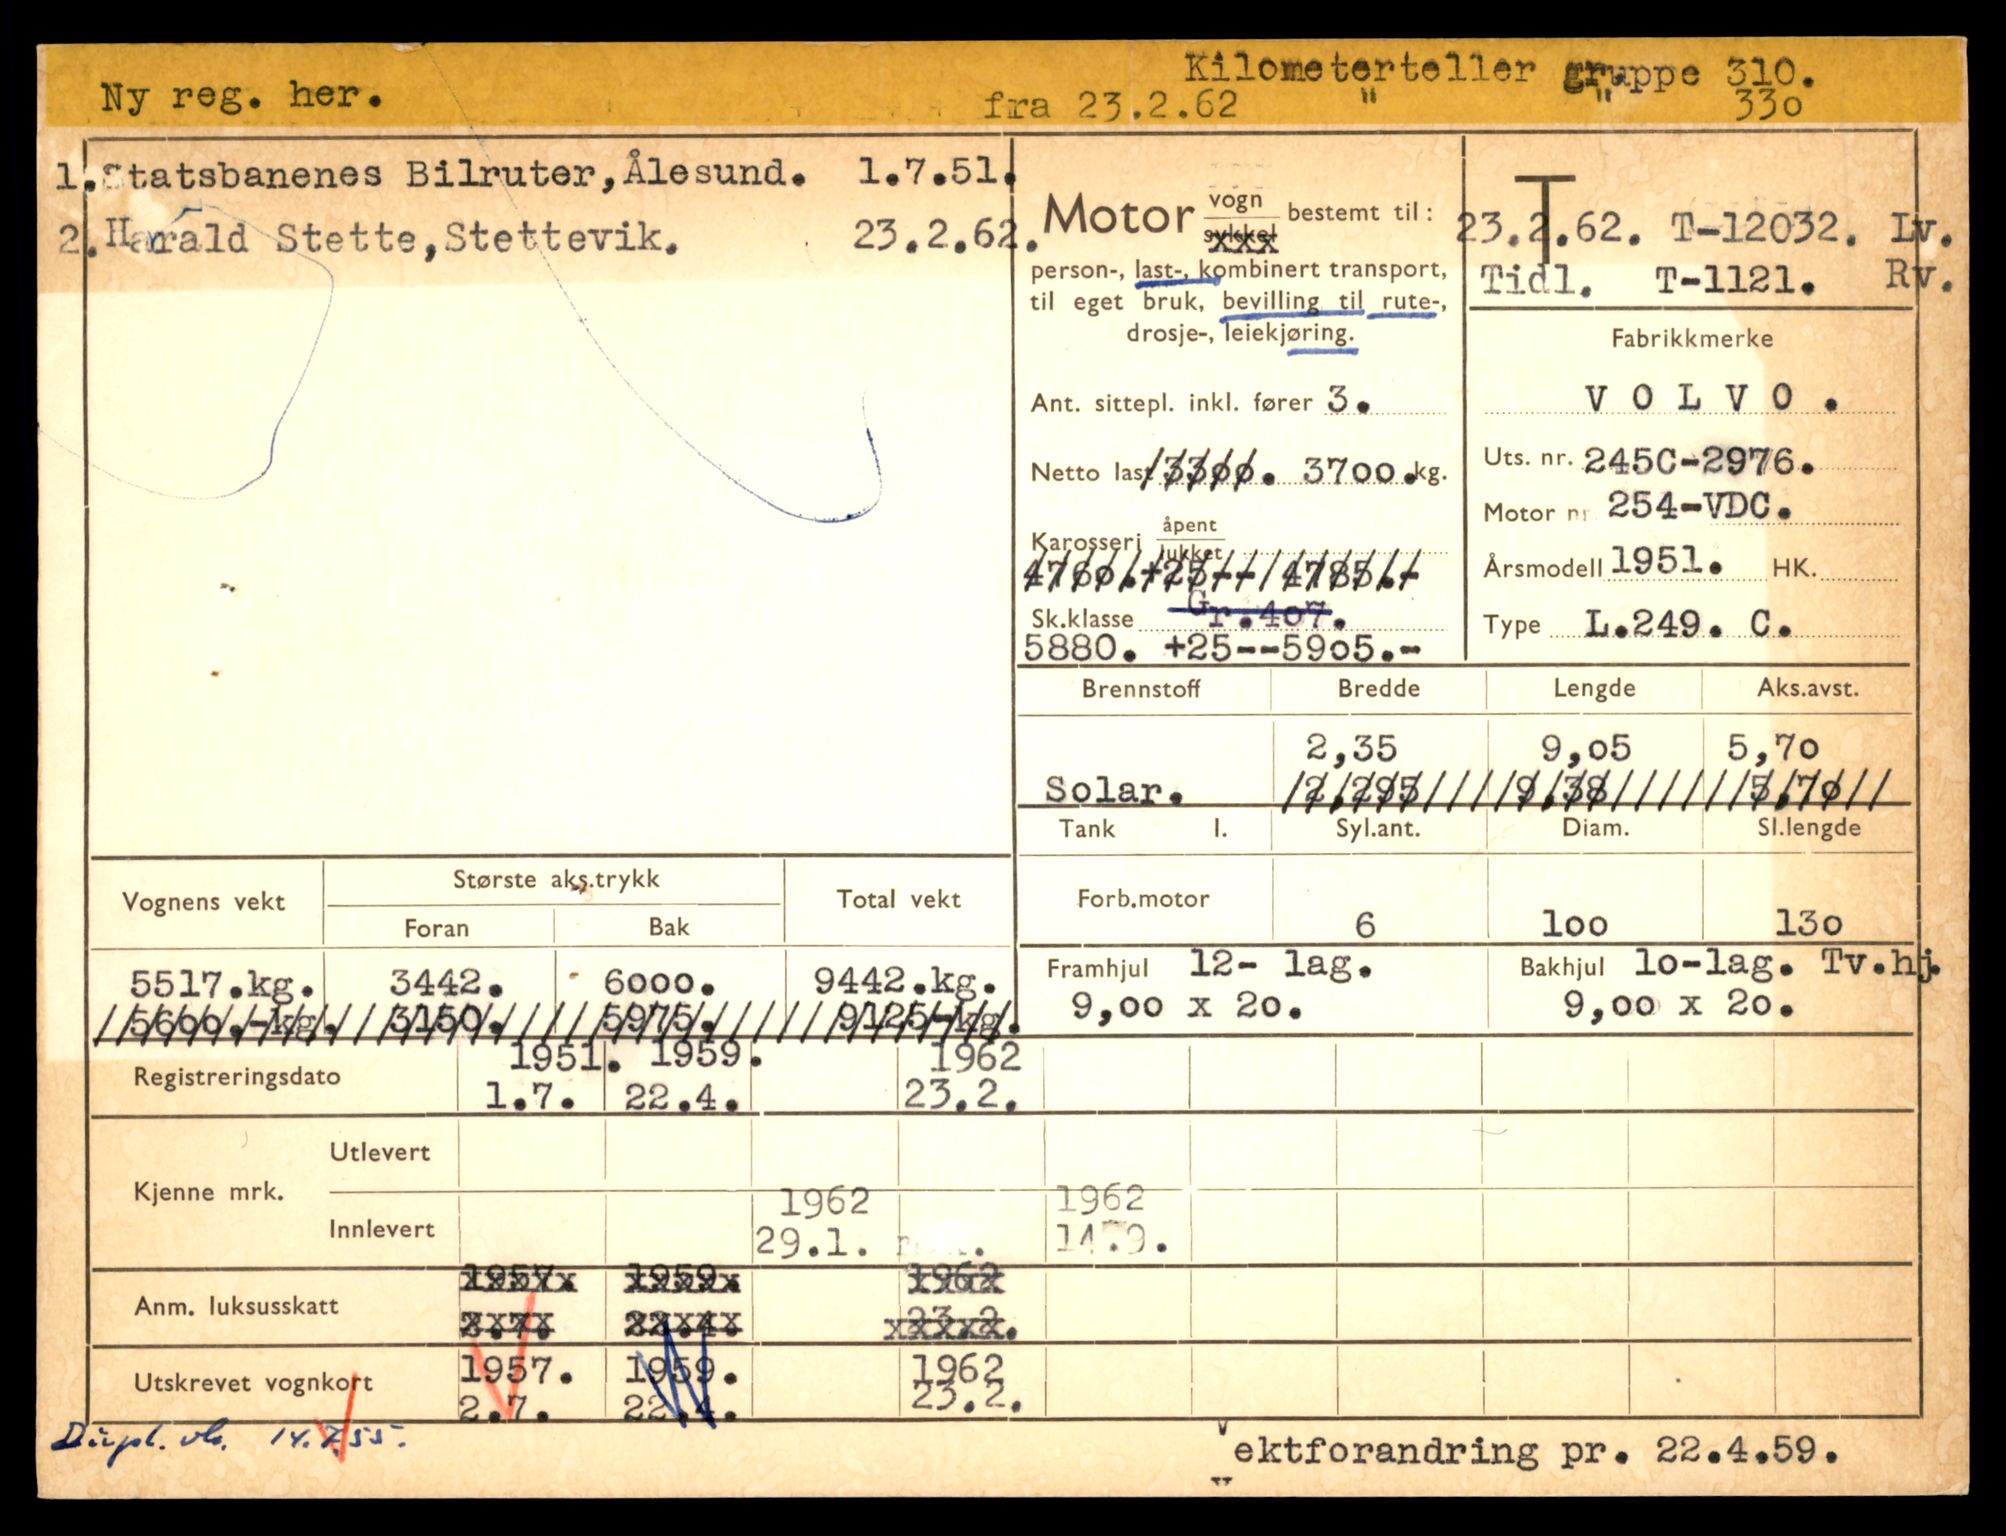 Ny reg. her.
Kilometerteller gruppe 310.
fra 23.2.62 " " 330
1. Statsbanenes Bilruter, Ålesund. 1.7.51.
2. Harald Stette, Stettevik. 23.2.62.
Motor vogn sykkel bestemt til:
person-, last-, kombinert transport,
til eget bruk, bevilling til rute-,
drosje-, leiekjøring.
Ant. sittepl. inkl. fører 3.
Netto last 3300. 3700.kg.
Karosseri åpent lukket
4760.+25-- 4785.-
Sk.klasse Gr.407.
5880. +25--5905.-
T
23.2.62. T-12032. Lv.
Tidl. T-1121. Rv.
Fabrikkmerke
VOLVO.
Uts. nr. 245C-2976.
Motor nr 254-VDC.
Årsmodell 1951. HK.
Type L.249. C.
Brennstoff Bredde Lengde Aks.avst.
2,35 9,05 5,70
Solar. 2,295 9,38 5,70
Tank l. Syl.ant. Diam. Sl.lengde
Forb.motor 6 100 130
Framhjul 12- lag. Bakhjul 10-lag. Tv.hj.
9,00 x 20. 9,00 x 20.
Vognens vekt Største aks.trykk Total vekt
Foran Bak
5517.kg. 3442. 6000. 9442.kg.
5600.-kg. 3150. 5975. 9125-kg.
Registreringsdato 1951. 1959. 1962
1.7. 22.4. 23.2.
Kjenne mrk. Utlevert
Innlevert 1962 1962
29.1. 14.9.
Anm. luksusskatt 1957. 1959. 1962
2.7. 22.4. 23.2.
Utskrevet vognkort 1957. 1959. 1962
2.7. 22.4. 23.2.
Dupl. vk. 14.7.55.
Vektforandring pr. 22.4.59.